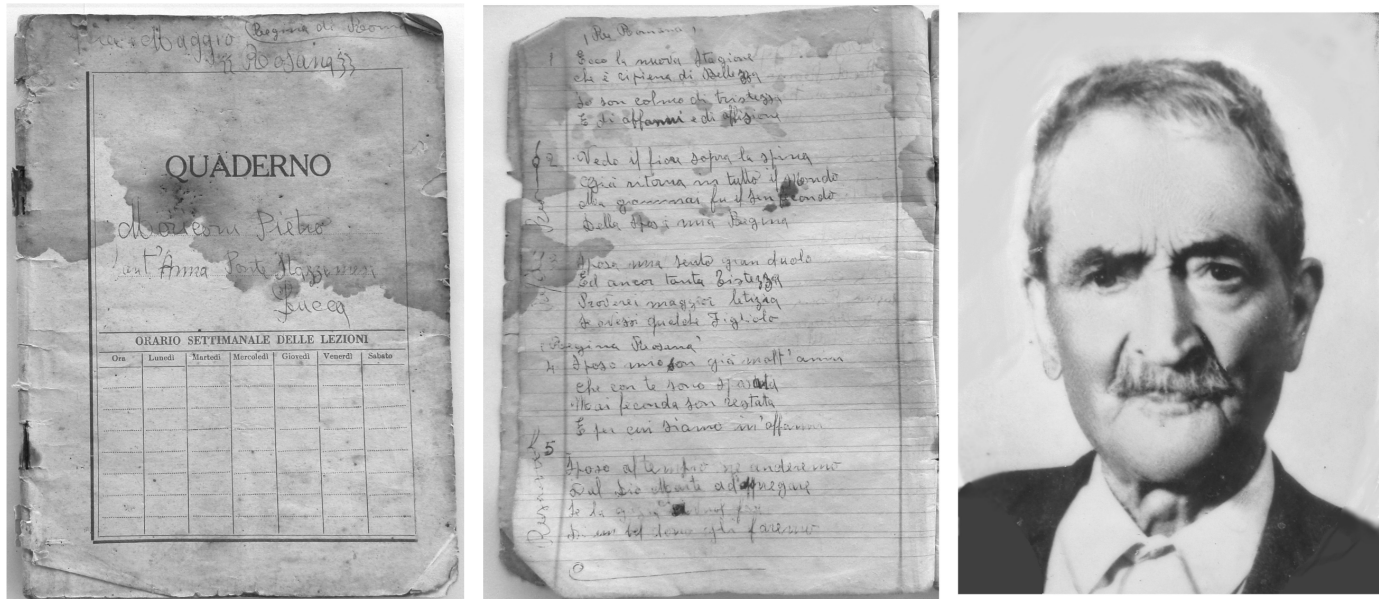 Maggio
Regina di Roma
Rosana
QUADERNO
Moriconi Pietro
Sant'Anna Ponte
Lucca
ORARIO SETTIMANALE DELLE LEZIONI
Ora Lunedì Martedì Mercoledì Giovedì Venerdì Sabato
Re Romano
1 Ecco la nuova Stagione
che è ripiena di Bellezza
Io son colmo di tristezza
E di affanni e di affizione
2 Vedo il fior sopra la spina
Già ritorna in tutto il Mondo
Ma fu il Sen
Della Sposa mia Regina
3 Sposa mia sento gran duolo
Ed ancor tanta Tistezza
Proverei maggior letizia
Se avessi qualche Figliolo
Regina Rosana
4 Sposo mio son già molt'anni
che con te sono
Mai feconda son restata
E per cui siamo in affanni
5 Sposo al tempio ne anderemo
Dal Dio Marte
Se la
Di un bel dono già faremo